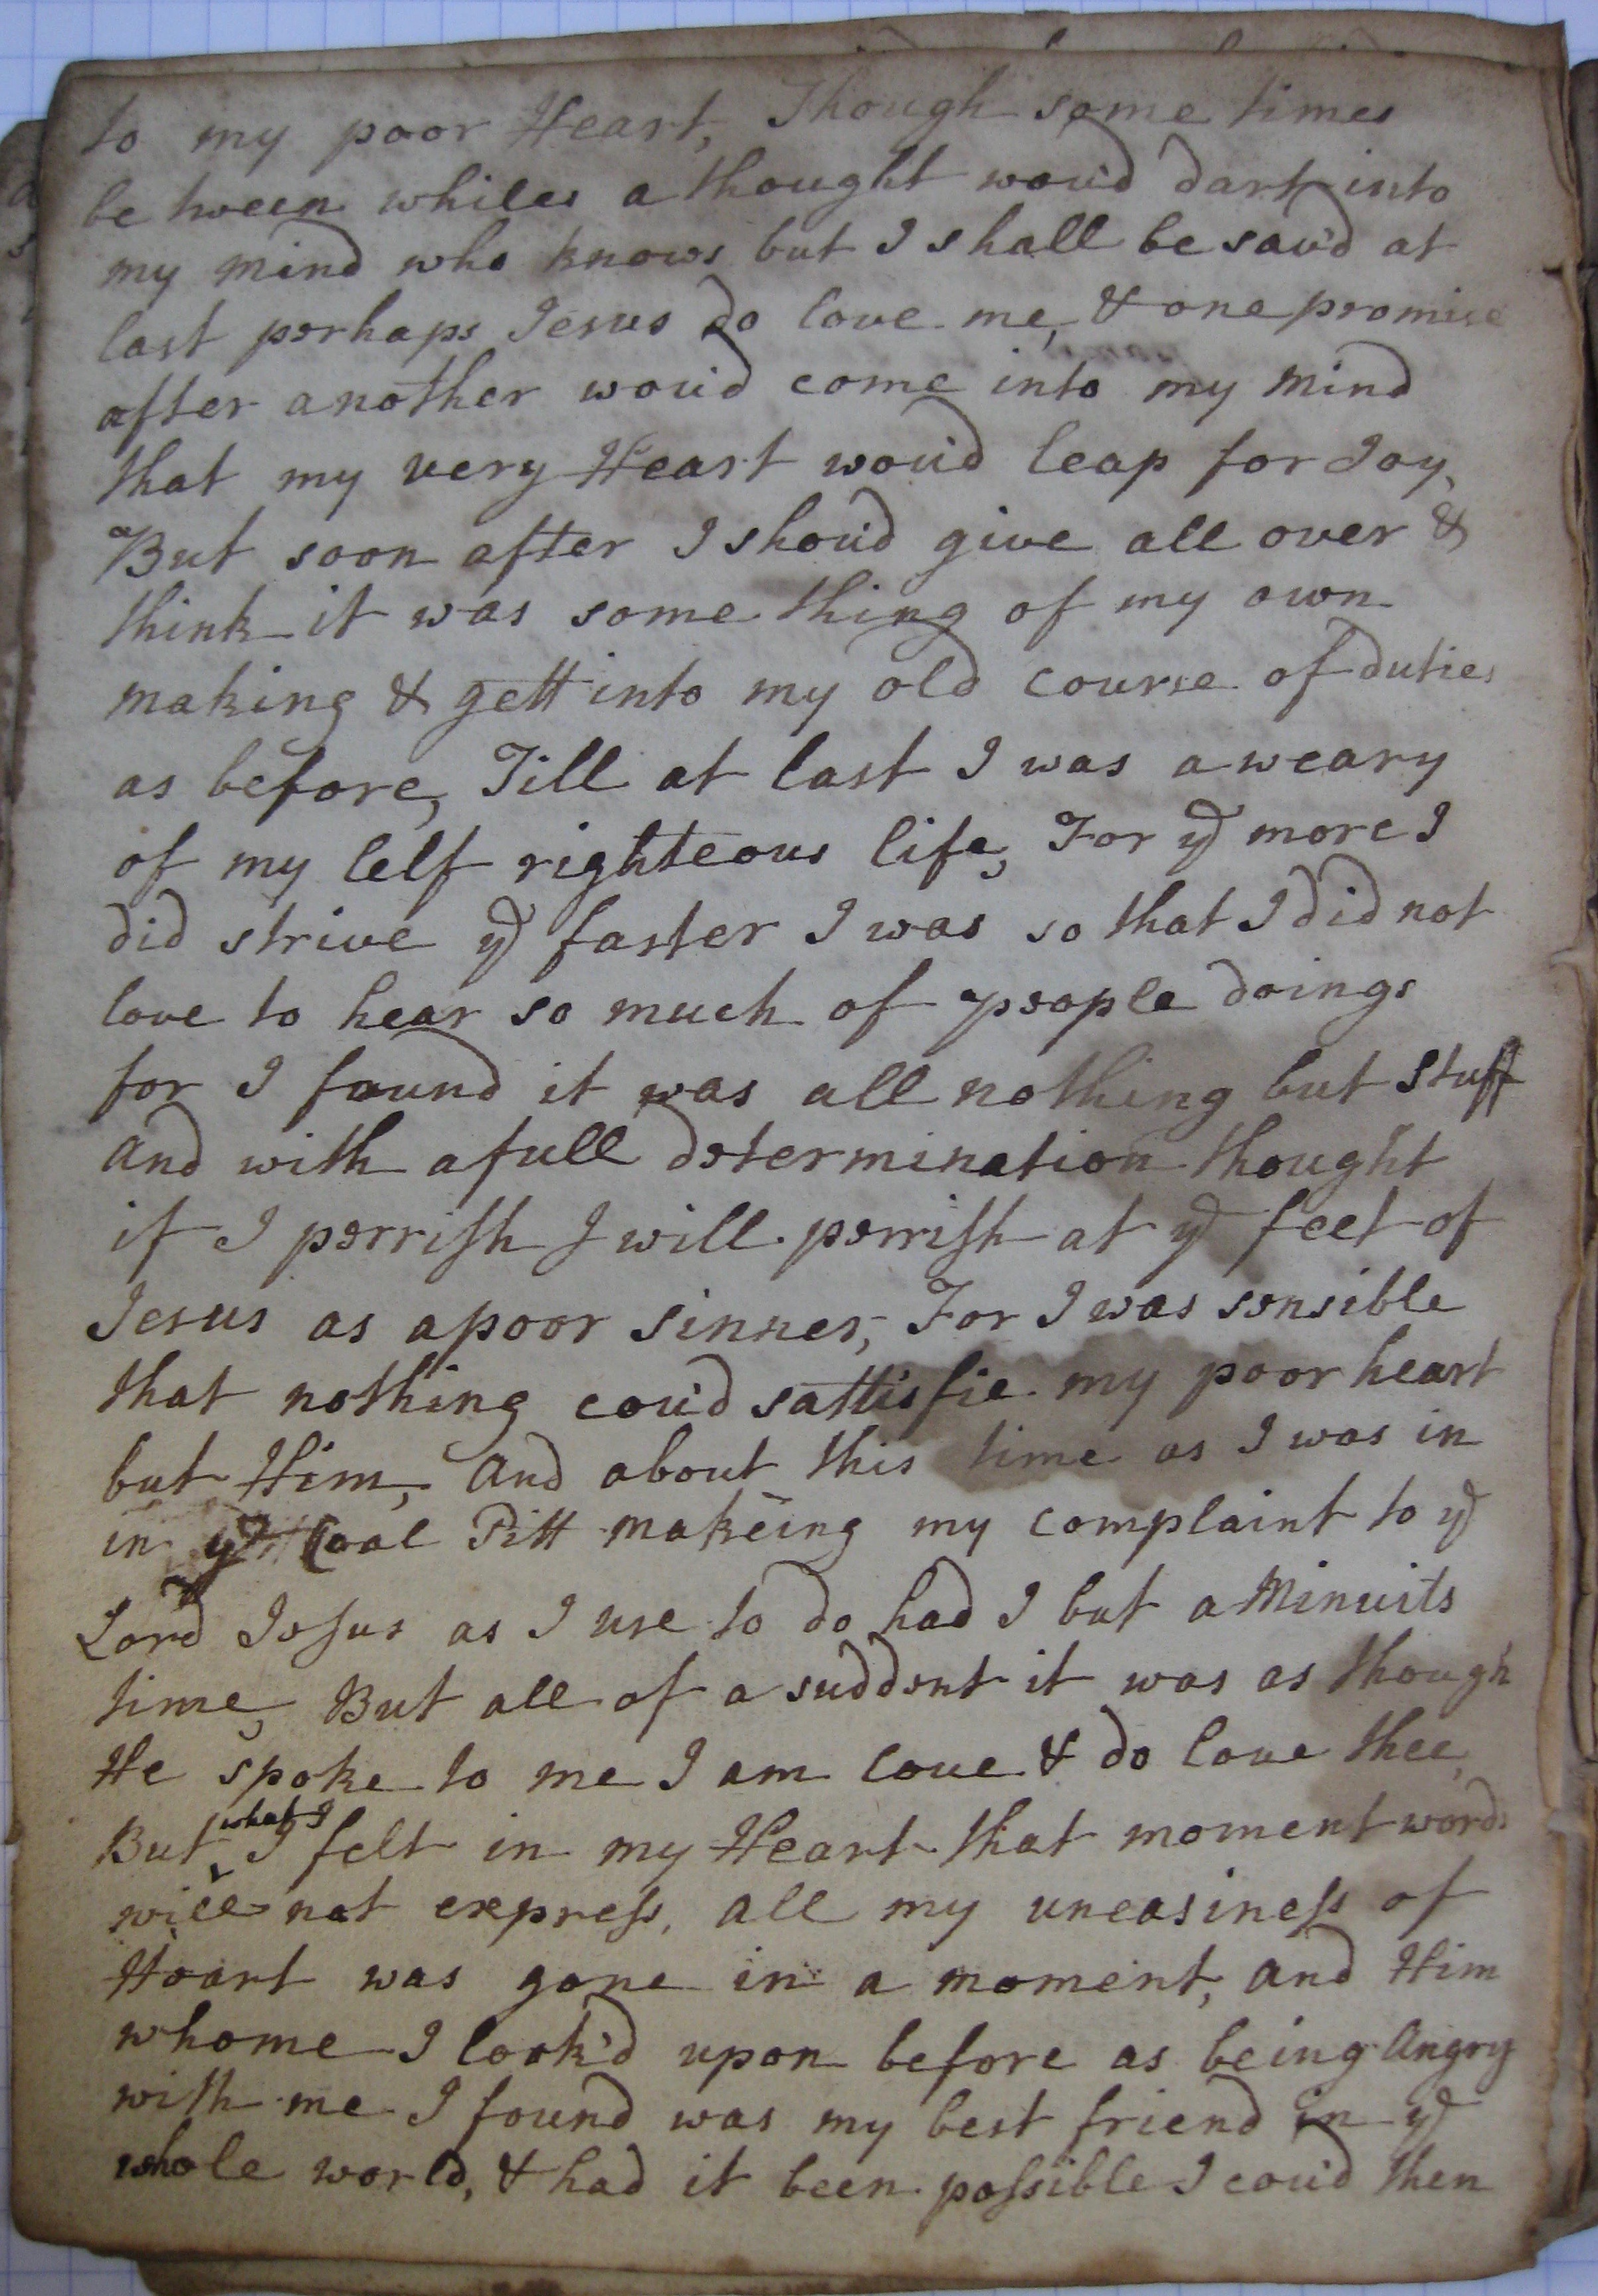 to my poor Heart, Though some times
be tween whiles a thought wou'd dart into
my mind who knows but I shall be sav'd at
last perhaps Jesus do love me, & one promise
after another wou'd come into my mind
that my very Heart wou'd leap for Joy,
But soon after I shou'd give all over &
think it was some thing of my own
making & gett into my old course of duties
as before, Till at last I was a weary
of my self righteous life, For ye more I
did strive ye faster I was so that I did not
love to hear so much of people doings
for I found it was all nothing but stuff
And with a full determination thought
if I perrish I will perrish at ye feet of
Jesus as a poor sinner, For I was sensible
that nothing cou'd sattisfie my poor heart
but Him, And about this time as I was in
in ye Coal Pitt makeing my complaint to ye
Lord Jesus as I use to do had I but a Minuits
time, But all of a suddent it was as though
He spoke to me I am love & do love thee,
But what I I felt in my Heart that moment words
will not express, all my uneasiness of
Heart was gone in a moment, and Him
whome I look'd upon before as being Angry
with me I found was my best friend in ye
whole world, & had it been possible I cou'd then